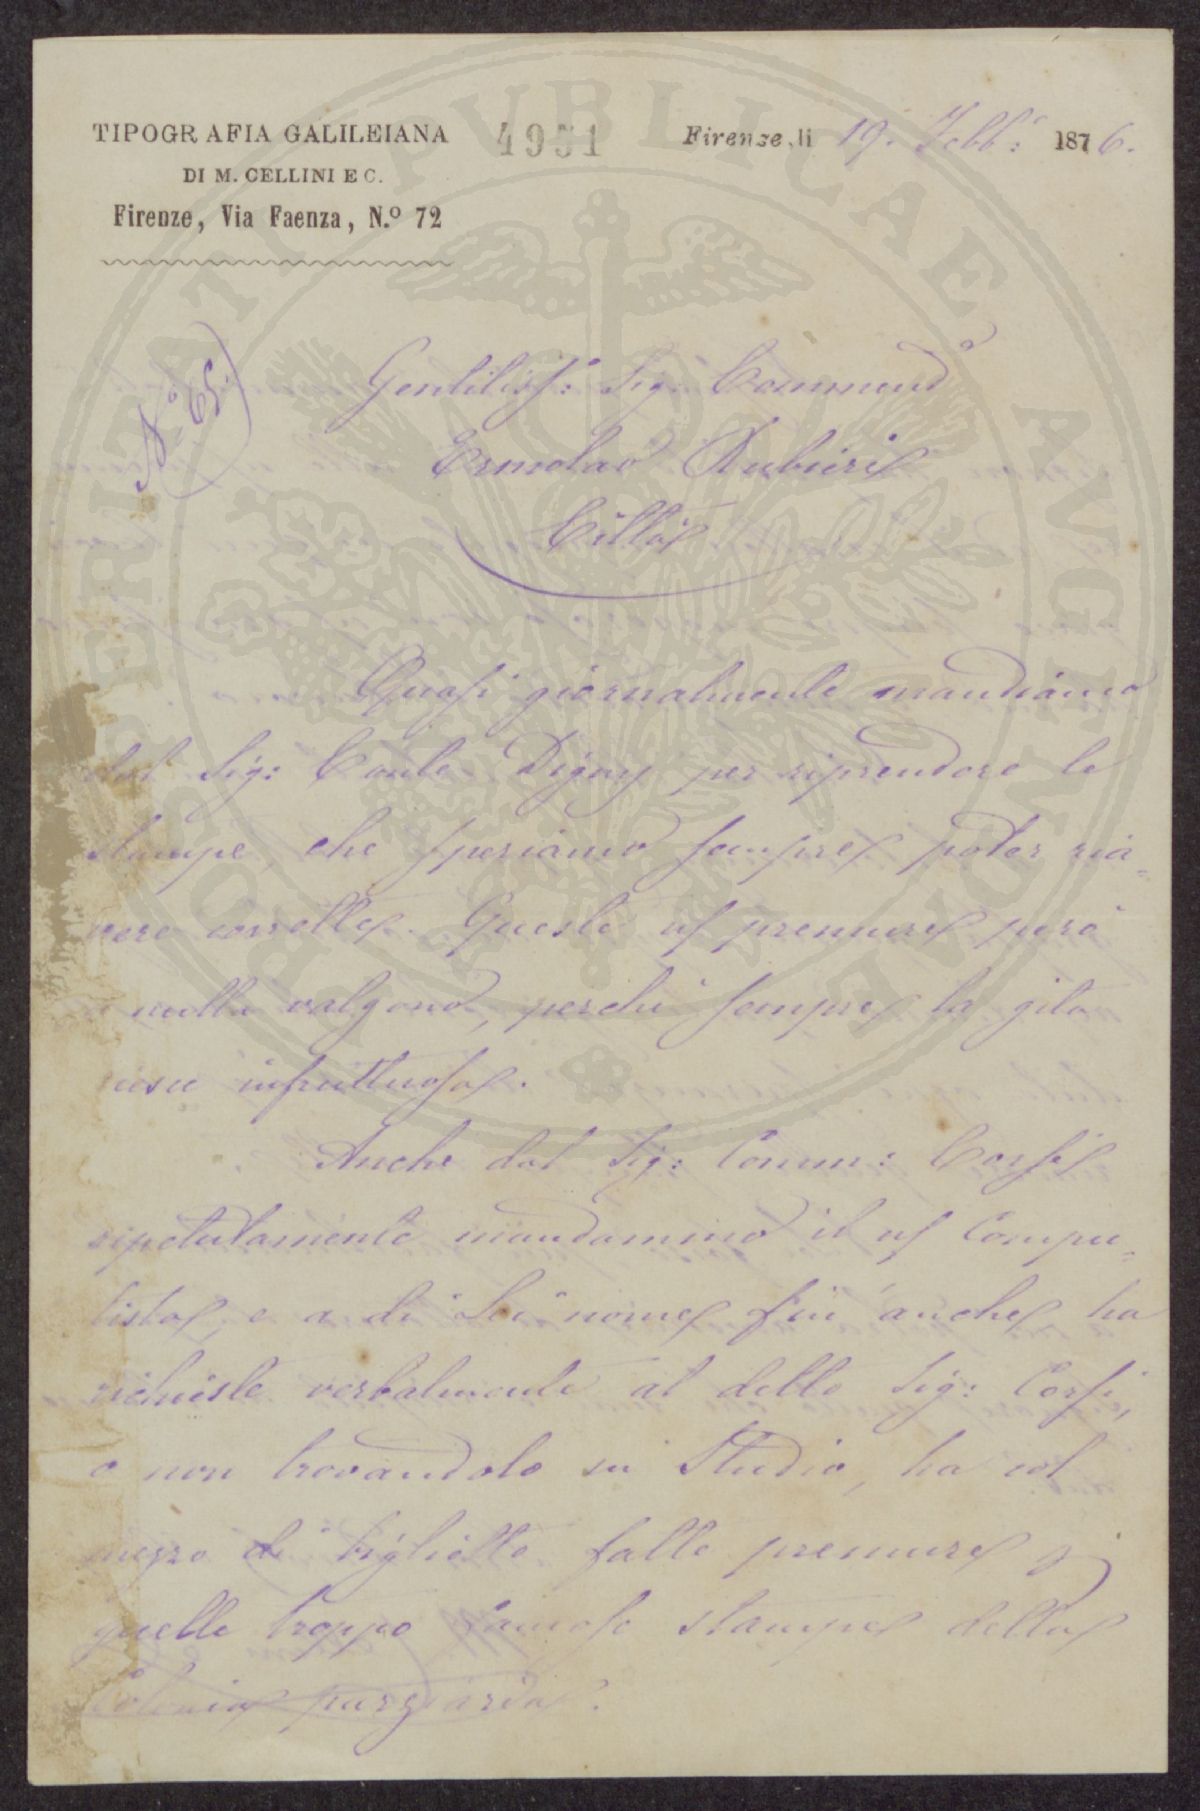 TIPOGRAFIA GALILEIANA
DI M. CELLINI E C.
Firenze, Via Faenza, N.º 72
4951
Firenze, li 19. Febb: 1876.
N.º 65.
Gentiliss: Sig: Commend
Ermolao Rubieri
Città
Quasi giornalmente mandiamo
dal Sig: Conte Digny per riprendere le
stampe, che speriamo sempre poter ria=
vere corrette. Queste ns premure però
a nulla valgono, perchè sempre la gita
riesce infruttuosa.
Anche dal Sig: Comm: Corsi
ripetutamente mandammo il ns Compu=
tista, e a di Lei nome fin anche, ha
richieste verbalmente al detto Sig: Corsi,
o non trovandolo in Studio, ha col
mezzo di biglietto fatte premure p
quelle troppo famose stampe della
Colonia
PROSPERITATI PVBLICAE AVGENDAE